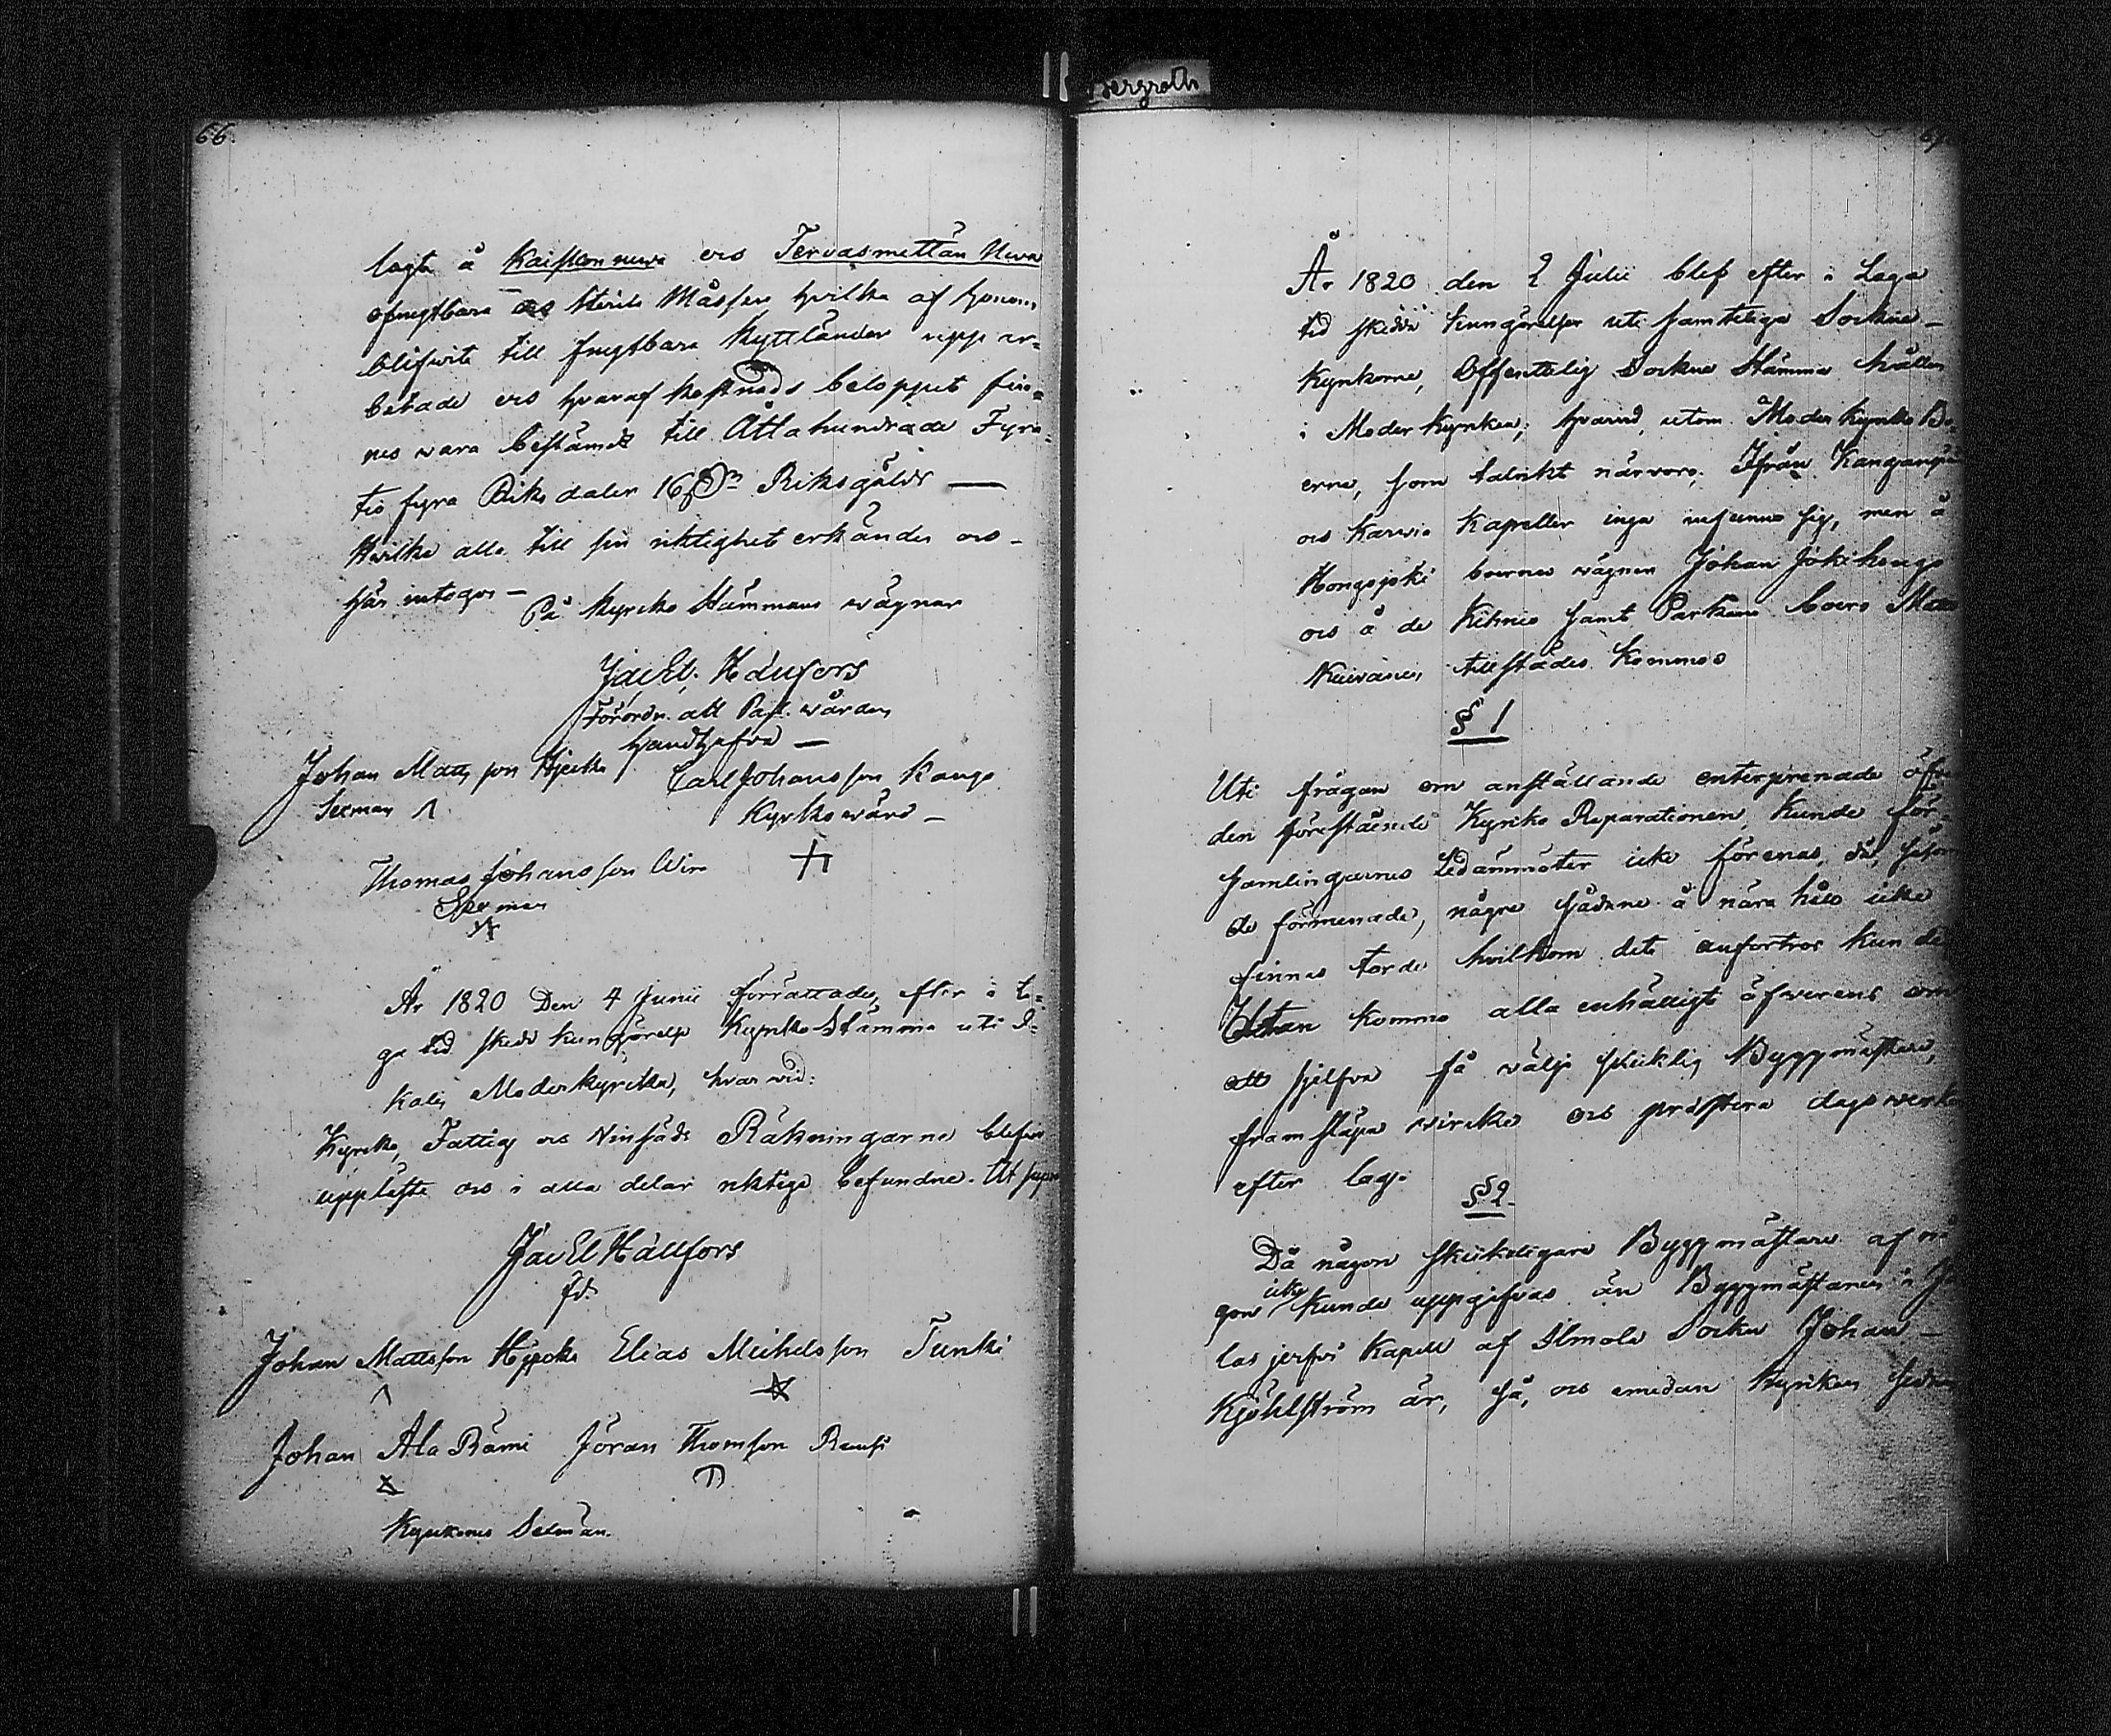 Bergroth
66.
lagte å Kaiston neva och Tervasmettän Neva
ofrugtbara och sterila Måssen hvilka af honom
blifwit till frugtbara Kyttländer upp ar-
betade och hvaraf kostnads beloppet fin-
nes wara bestämdt till Åttahundrade Fyra-
tio fyra Riksdaler 16 Riksgälds —
Hvilka alla till sin riktighet erkändes och
här intogos —
På Kyrcko Stämmans wägnar
Jac El. Hällfors
Förordn. att Past. wården
handhafva —
Johan Matts son Hjecka
Sexman
Carl Johansson Kango
Kyrkowärd —
Thomas Johansson Win
Sexman
År 1820 Den 4 Junii förrättades, efter i la-
ga tid skedd kungörelse Kyrko Stämma uti I-
kalis Moderkyrcka, hvarwid:
Kyrcko, Fattig och Vinsäds Räkningarne blefvo
uppläste och i alla delar riktige befundne. Ut supra
Jac El Hällfors
Johan Mattsson Hjecka Elias Michelsson Tunki
Johan Ala Rämi Jöran Thomson
Kyrkones Sexmän.
År 1820 den 2 Julii blef efter i Laga
tid skedde kungörelser uti samteliga Sockne-
Kyrkorne, Offentelig Sockne Stämma hållen
i Moder Kyrkan; hvarvid, utom Moder Kyrko Bo-
erne, som talrikt närvoro, Ifrån Kanganpä
och Karvia Kapeller inga infunno sig, men å
Hongojoki boernes vägnar Johan Jokihongo
och å de Kihnio samt Parkano boers Matts
tillstädes kommo
§ 1
Uti frågan om anställande entreprenade öfver
den förestående Kyrko Reparationen, kunde för-
samlingarnes Ledammöter icke förenas, då, såsom
de förmenade, någre sådane å nära håll icke
finnas torde hvilkom dete anförtros kunde
Utan kommo alla enhälligt öfwerens om
att sjelfve få wälje skicklig Byggmästare,
framsläpa wircke och prästera dagswerke
efter lag.
§ 2
Då någon skickeligare Byggmästare af nå-
gon icke kunde uppgifvas än Byggmästaren i Ja-
lasjerfvi Kapell af Ilmola Sockn Johan —
Kjöhlström är, så, och emedan Kyrkan